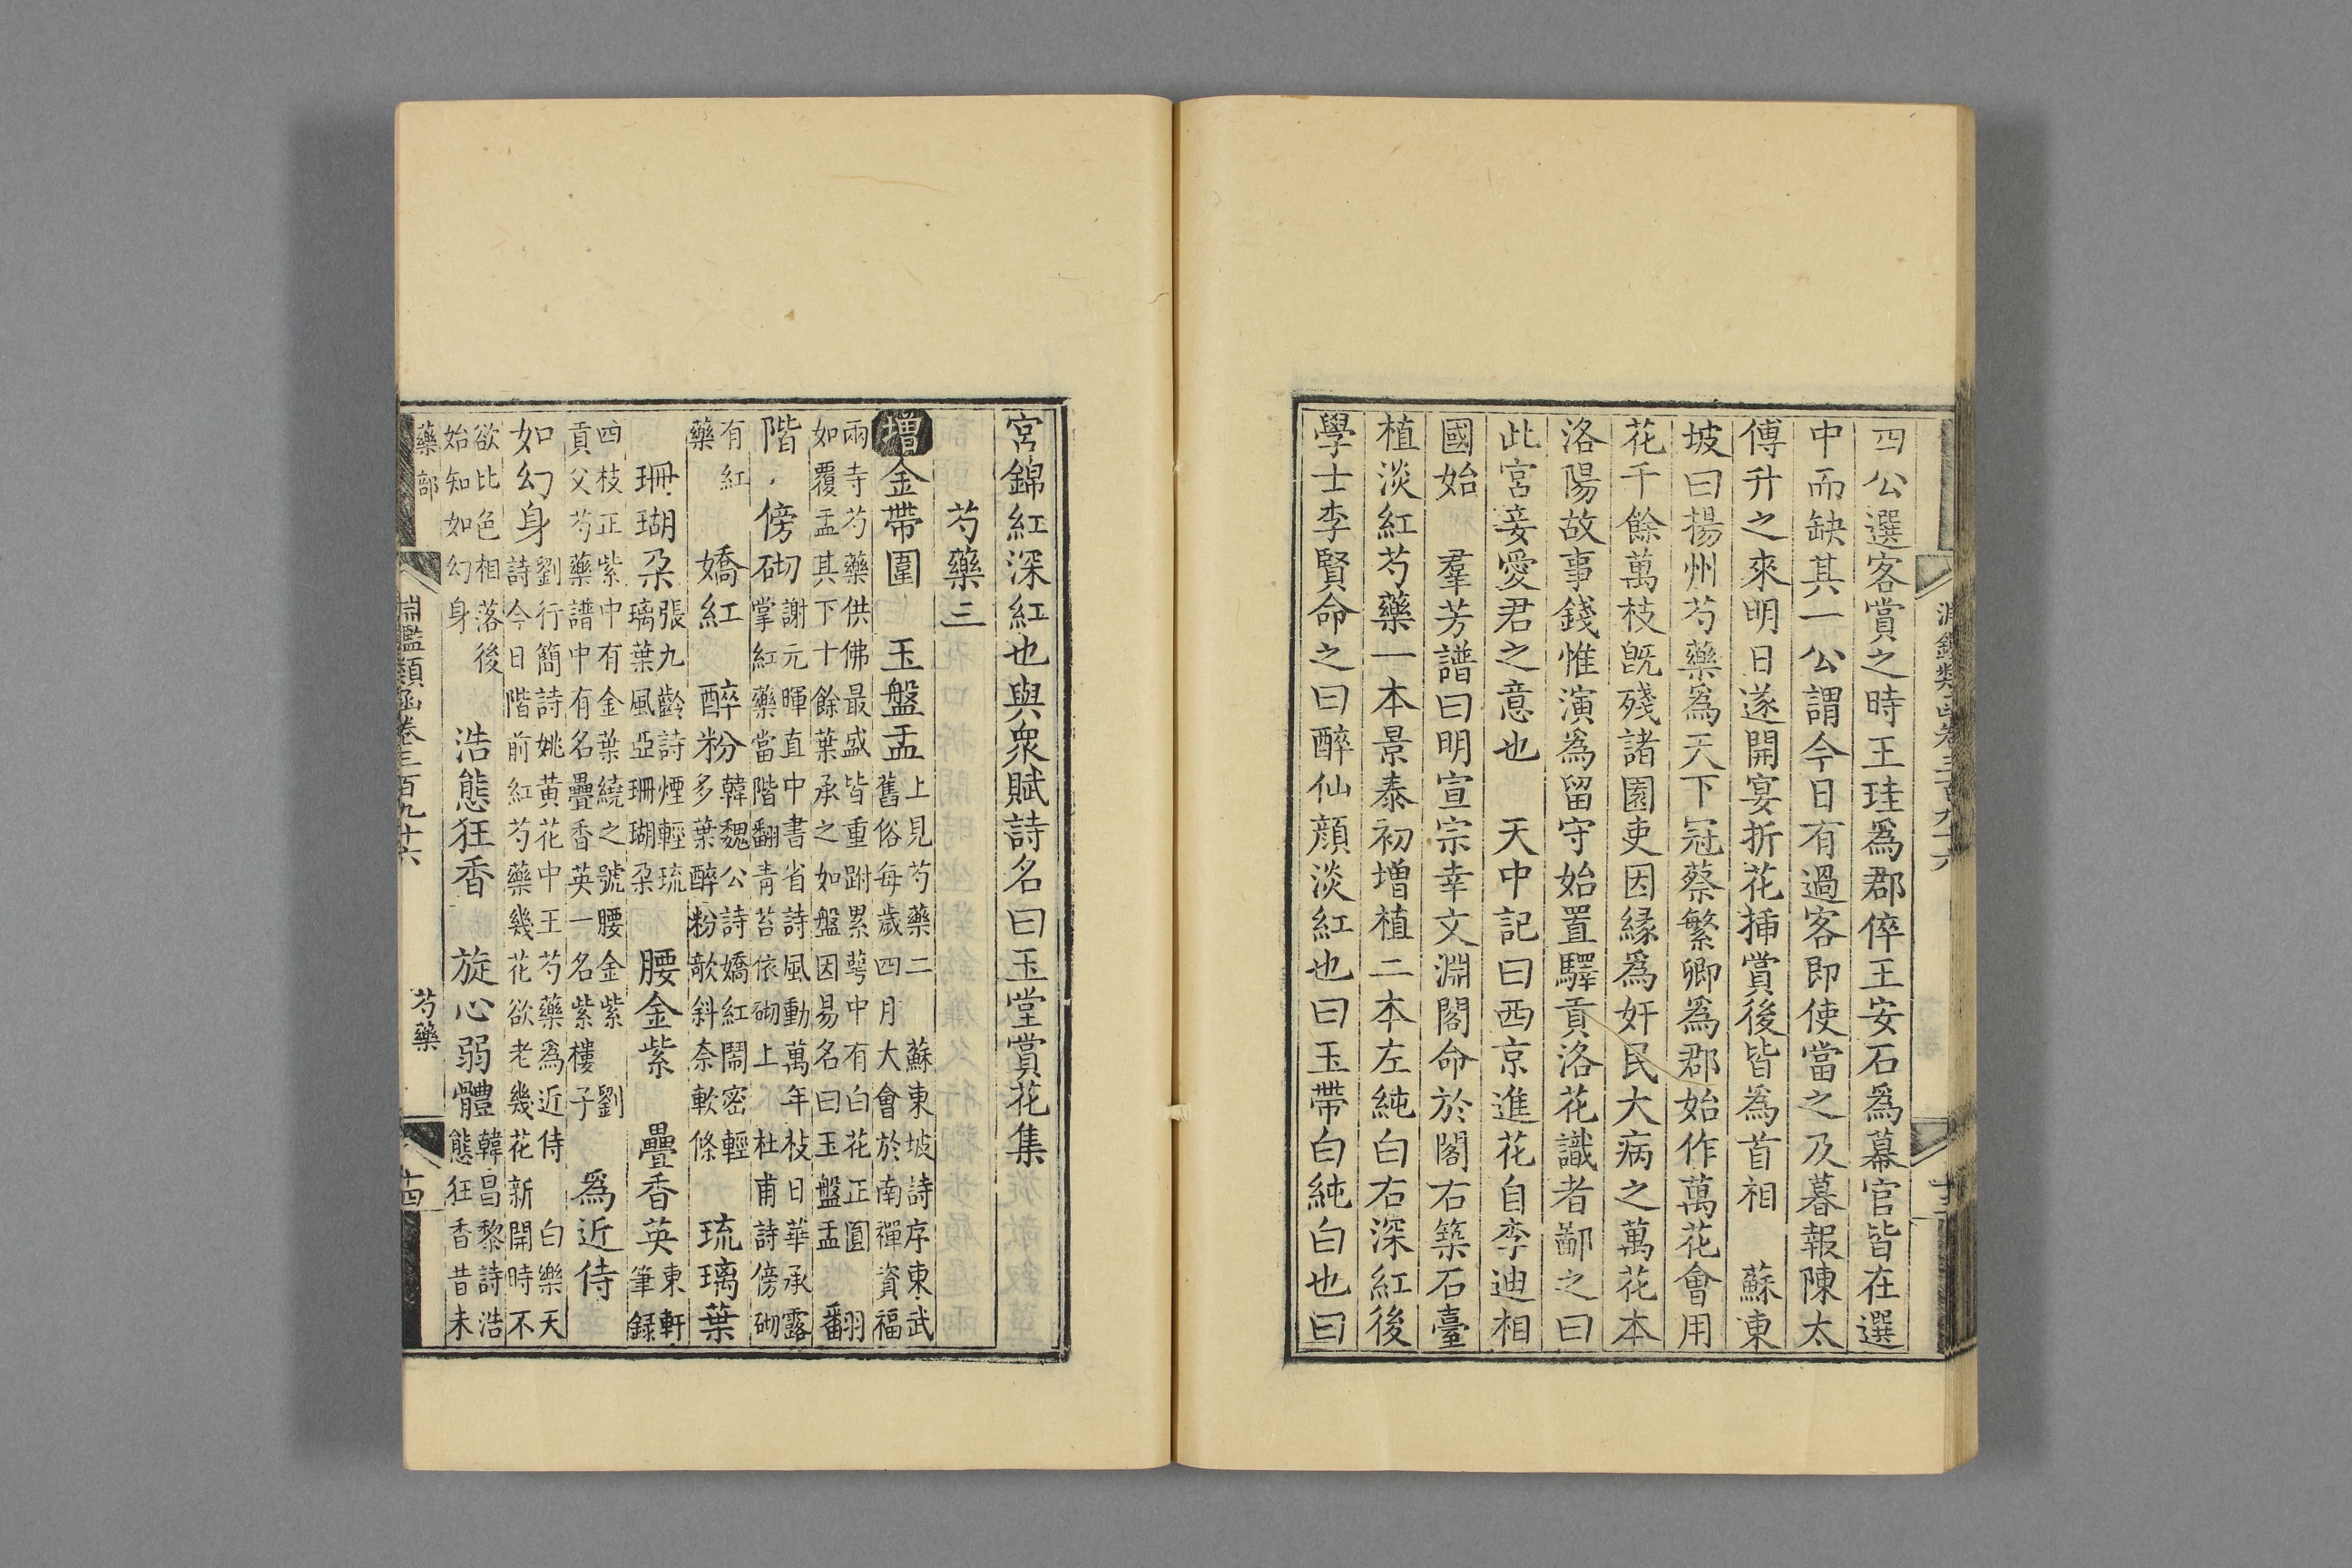 四公選客賞之時王珪爲郡倅王安石爲幕官皆在選
中而缺其一公謂今日有過客即使當之及暮報陳太
傅升之來明日遂開宴折花揷賞後皆爲首相　蘇東
坡曰揚州芍藥爲天下冠蔡繁卿爲郡始作萬花會用
花千餘萬枝旣殘諸園吏因緣爲奸民大病之萬花本
洛陽故事錢惟演爲留守始置驛貢洛花識者鄙之曰
此宮妾愛君之意也　天中記曰西京進花自李迪相
國始　羣芳譜曰明宣宗幸文淵閣命於閣右築石臺
植淡紅芍藥一本景泰初增植二本左純白右深紅後
學士李賢命之曰醉仙顏淡紅也曰玉帶白純白也曰
宮錦紅深紅也與衆賦詩名曰玉堂賞花集
芍藥三
增金帶圍　玉盤盂上見芍藥二　蘇東坡詩序東武
舊俗每歲四月大會於南禪資福
兩寺芍藥供佛最盛皆重跗累萼中有白花正圓
如覆盂其下十餘葉承之如盤因易名曰玉盤盂　翻
階　傍砌謝元暉直中書省詩風動萬年枝日華承露
掌紅藥當階翻青苔依砌上　杜甫詩傍砌
有紅
藥　嬌紅　醉粉韓魏公詩嬌紅鬧密輕
多葉醉粉欹斜奈軟條　琉璃葉
珊瑚朶張九齡詩煙輕琉
璃葉風亞珊瑚朶　腰金紫　疊香英東軒
筆録
四枝正紫中有金葉繞之號腰金紫　劉
貢父芍藥譜中有名疊香英一名紫樓子　爲近侍
如幻身劉行簡詩姚黃花中王芍藥爲近侍　白樂天
詩今日階前紅芍藥幾花欲老幾花新開時不
欲比色相落後
始知如幻身　浩態狂香　旋心弱體韓昌黎詩浩
態狂香昔未
藥部
淵鑑類函卷三百九十六
芍藥
十四